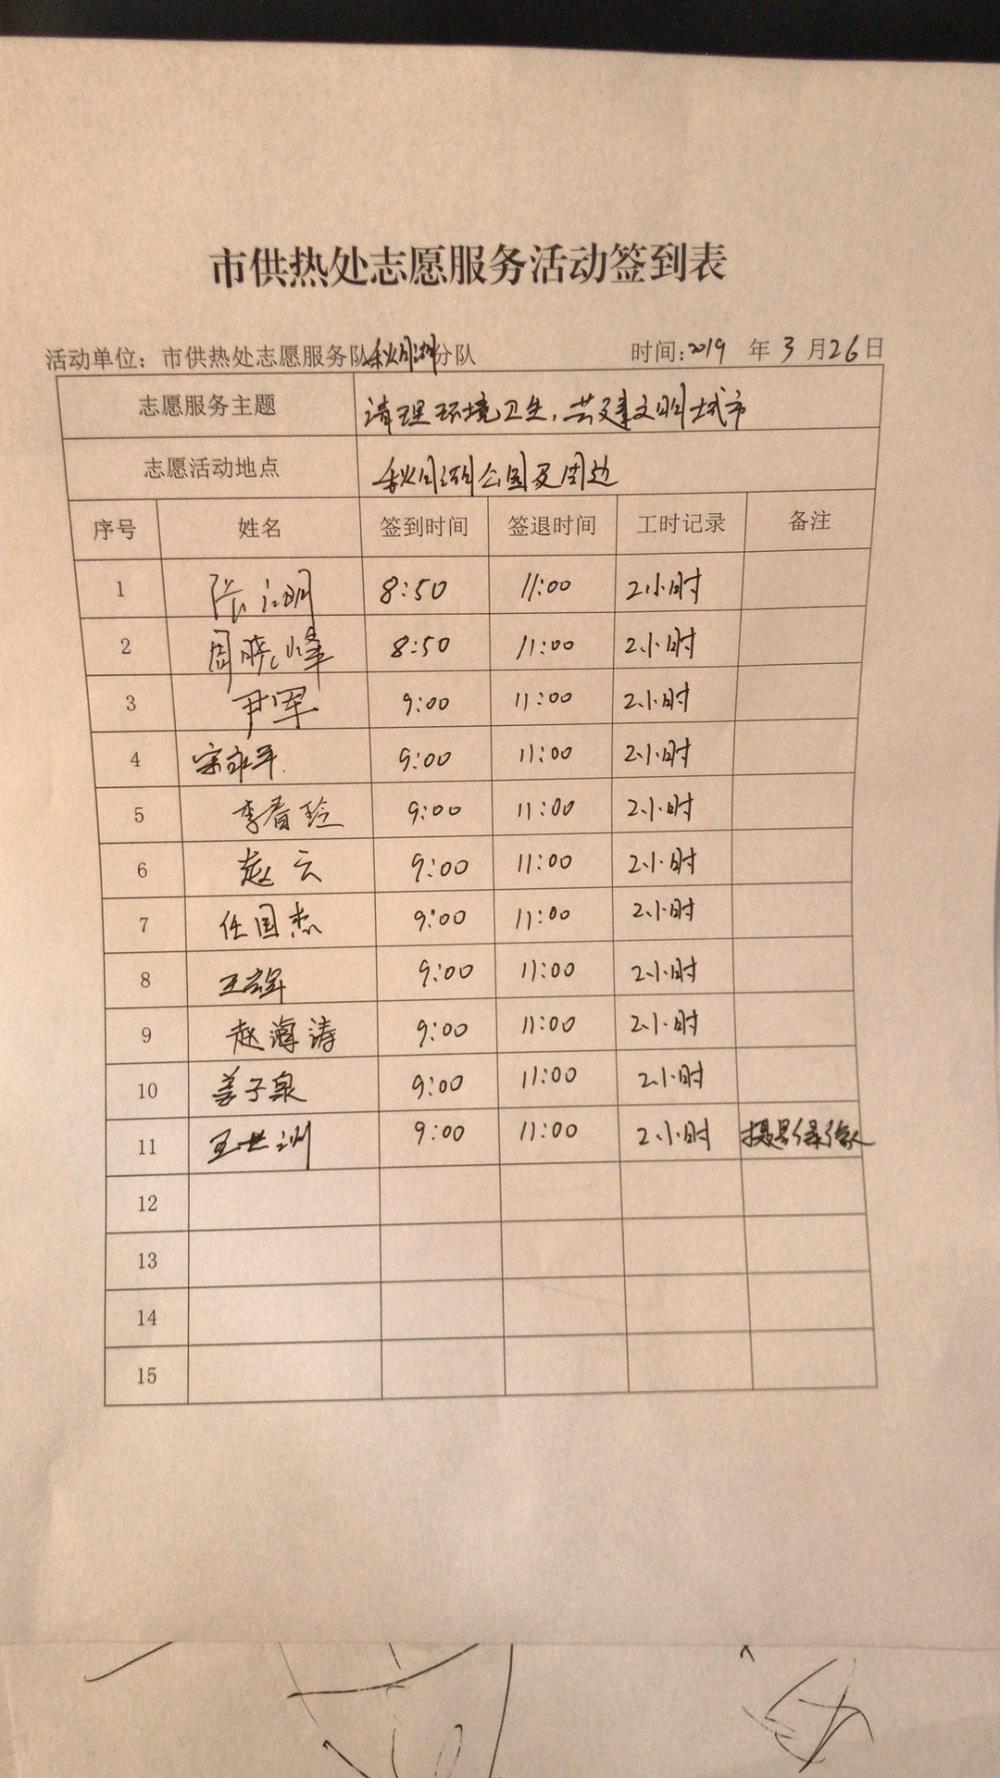 市供热处志愿服务活动签到表
活动单位：市供热处志愿服务队秋月湖分队 时间:2019 年 3 月 26 日
志愿服务主题 清理环境卫生,共建文明城市
志愿活动地点 秋月湖公园及周边
序号 姓名 签到时间 签退时间 工时记录 备注
1 张江明 8:50 11:00 2小时
2 周晓峰 8:50 11:00 2小时
3 尹军 9:00 11:00 2小时
4 宋永军 9:00 11:00 2小时
5 李春玲 9:00 11:00 2小时
6 赵云 9:00 11:00 2小时
7 任国杰 9:00 11:00 2小时
8 9:00 11:00 2小时
9 赵海涛 9:00 11:00 2小时
10 姜子泉 9:00 11:00 2小时
11 王世洲 9:00 11:00 2小时 摄影录像
12
13
14
15